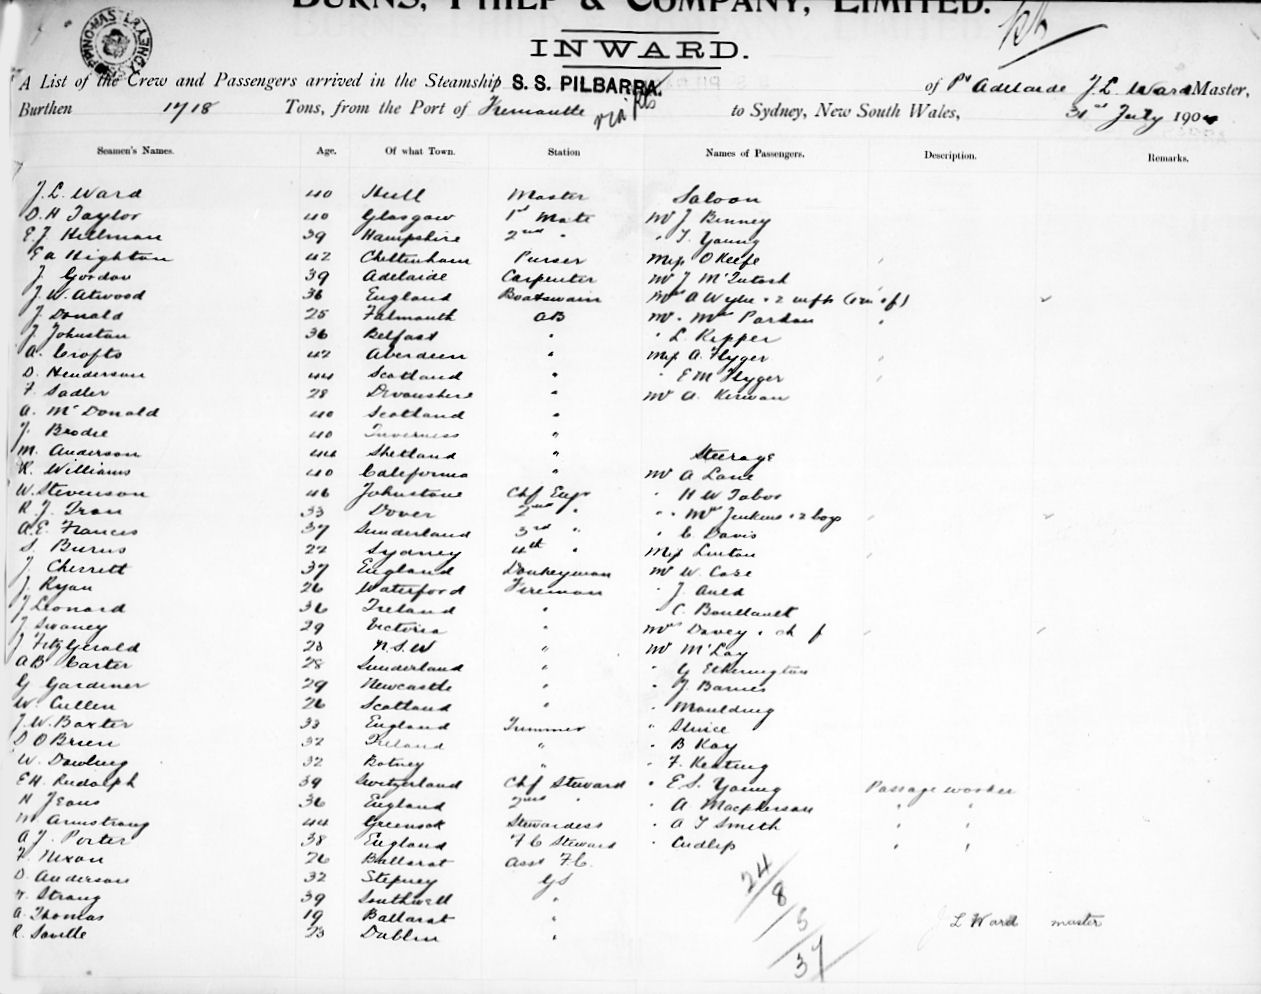 BURNS, PHILP & COMPANY, LIMITED.
INWARD.
A List of the Crew and Passengers arrived in the Steamship S. S. PILBARRA. of Pt Adelaide J. L. Ward Master,
Burthen 1718 Tons, from the Port of Fremantle via pts to Sydney, New South Wales, 31st July 190
Seamen's Names. Age. Of what Town. Station Names of Passengers. Description. Remarks.
J. L. Ward 40 Hull Master Saloon
D. H Taylor 40 Glasgow 1st Mate Mr J Binney
E J Hillman 39 Hampshire 2nd " " T. Young
E A Highton 42 Cheltenham Purser Miss O'Keefe
J Gordon 39 Adelaide Carpenter Mr J McIntosh
J. W. Atwood 36 England Boatswain Mrs A Wylie & 2 infts (1m 1f)
J Donald 25 Falmouth AB Mr & Mrs Pardon
J Johnston 36 Belfast " " L. Kipper
A. Crofts 42 Aberdeen " Miss A. Flyger
D. Henderson 44 Scotland " " E M Flyger
F. Sadler 28 Devonshire " Mr A. Kirwan
A. McDonald 40 Scotland "
J. Brodie 40 Inverness "
M. Anderson 44 Shetland " Steerage
R. Williams 40 California " Mr A Lane
W. Stevenson 46 Johnstone Chf Engr " H W Tabor
R J. Tron 33 Dover 2nd " " " Mrs Jenkins & 2 boys
A. E. Francis 37 Sunderland 3rd " " C Davis
S. Burns 22 Sydney 4th " Miss Linton
J Cherrett 37 England Donkeyman Mr W. Case
J. Ryan 26 Waterford Fireman " J Auld
J Leonard 36 Ireland " " C. Boullault
J Swaney 29 Victoria " Mrs Davey & ch f
J FitzGerald 23 N. S. W " Mr McLay
A B Carter 28 Sunderland " " G Etherington
G Gardiner 29 Newcastle " " J. Barnes
W. Cullen 26 Scotland " " Moulding
J. W. Baxter 33 England Trimmer "
D O'Brien 32 Ireland " " B Kay
W. Dowling 32 Botney " " F. Keating
E H. Rudolph 39 Switzerland Chf Steward " E S. Young Passage worker
H Jeans 36 England 2nd " " A Macpherson " "
M Armstrong 44 Greenock Stewardess " A T Smith " "
A J. Porter 38 England F C Steward " Cudlip " "
F. Nixon 26 Ballarat Asst F. C.
D. Anderson 32 Stepney G S
Strang 39 Southwell "
A. Thomas 19 Ballarat " J L Ward master
R. Saville 23 Dublin "
24
8
5
37